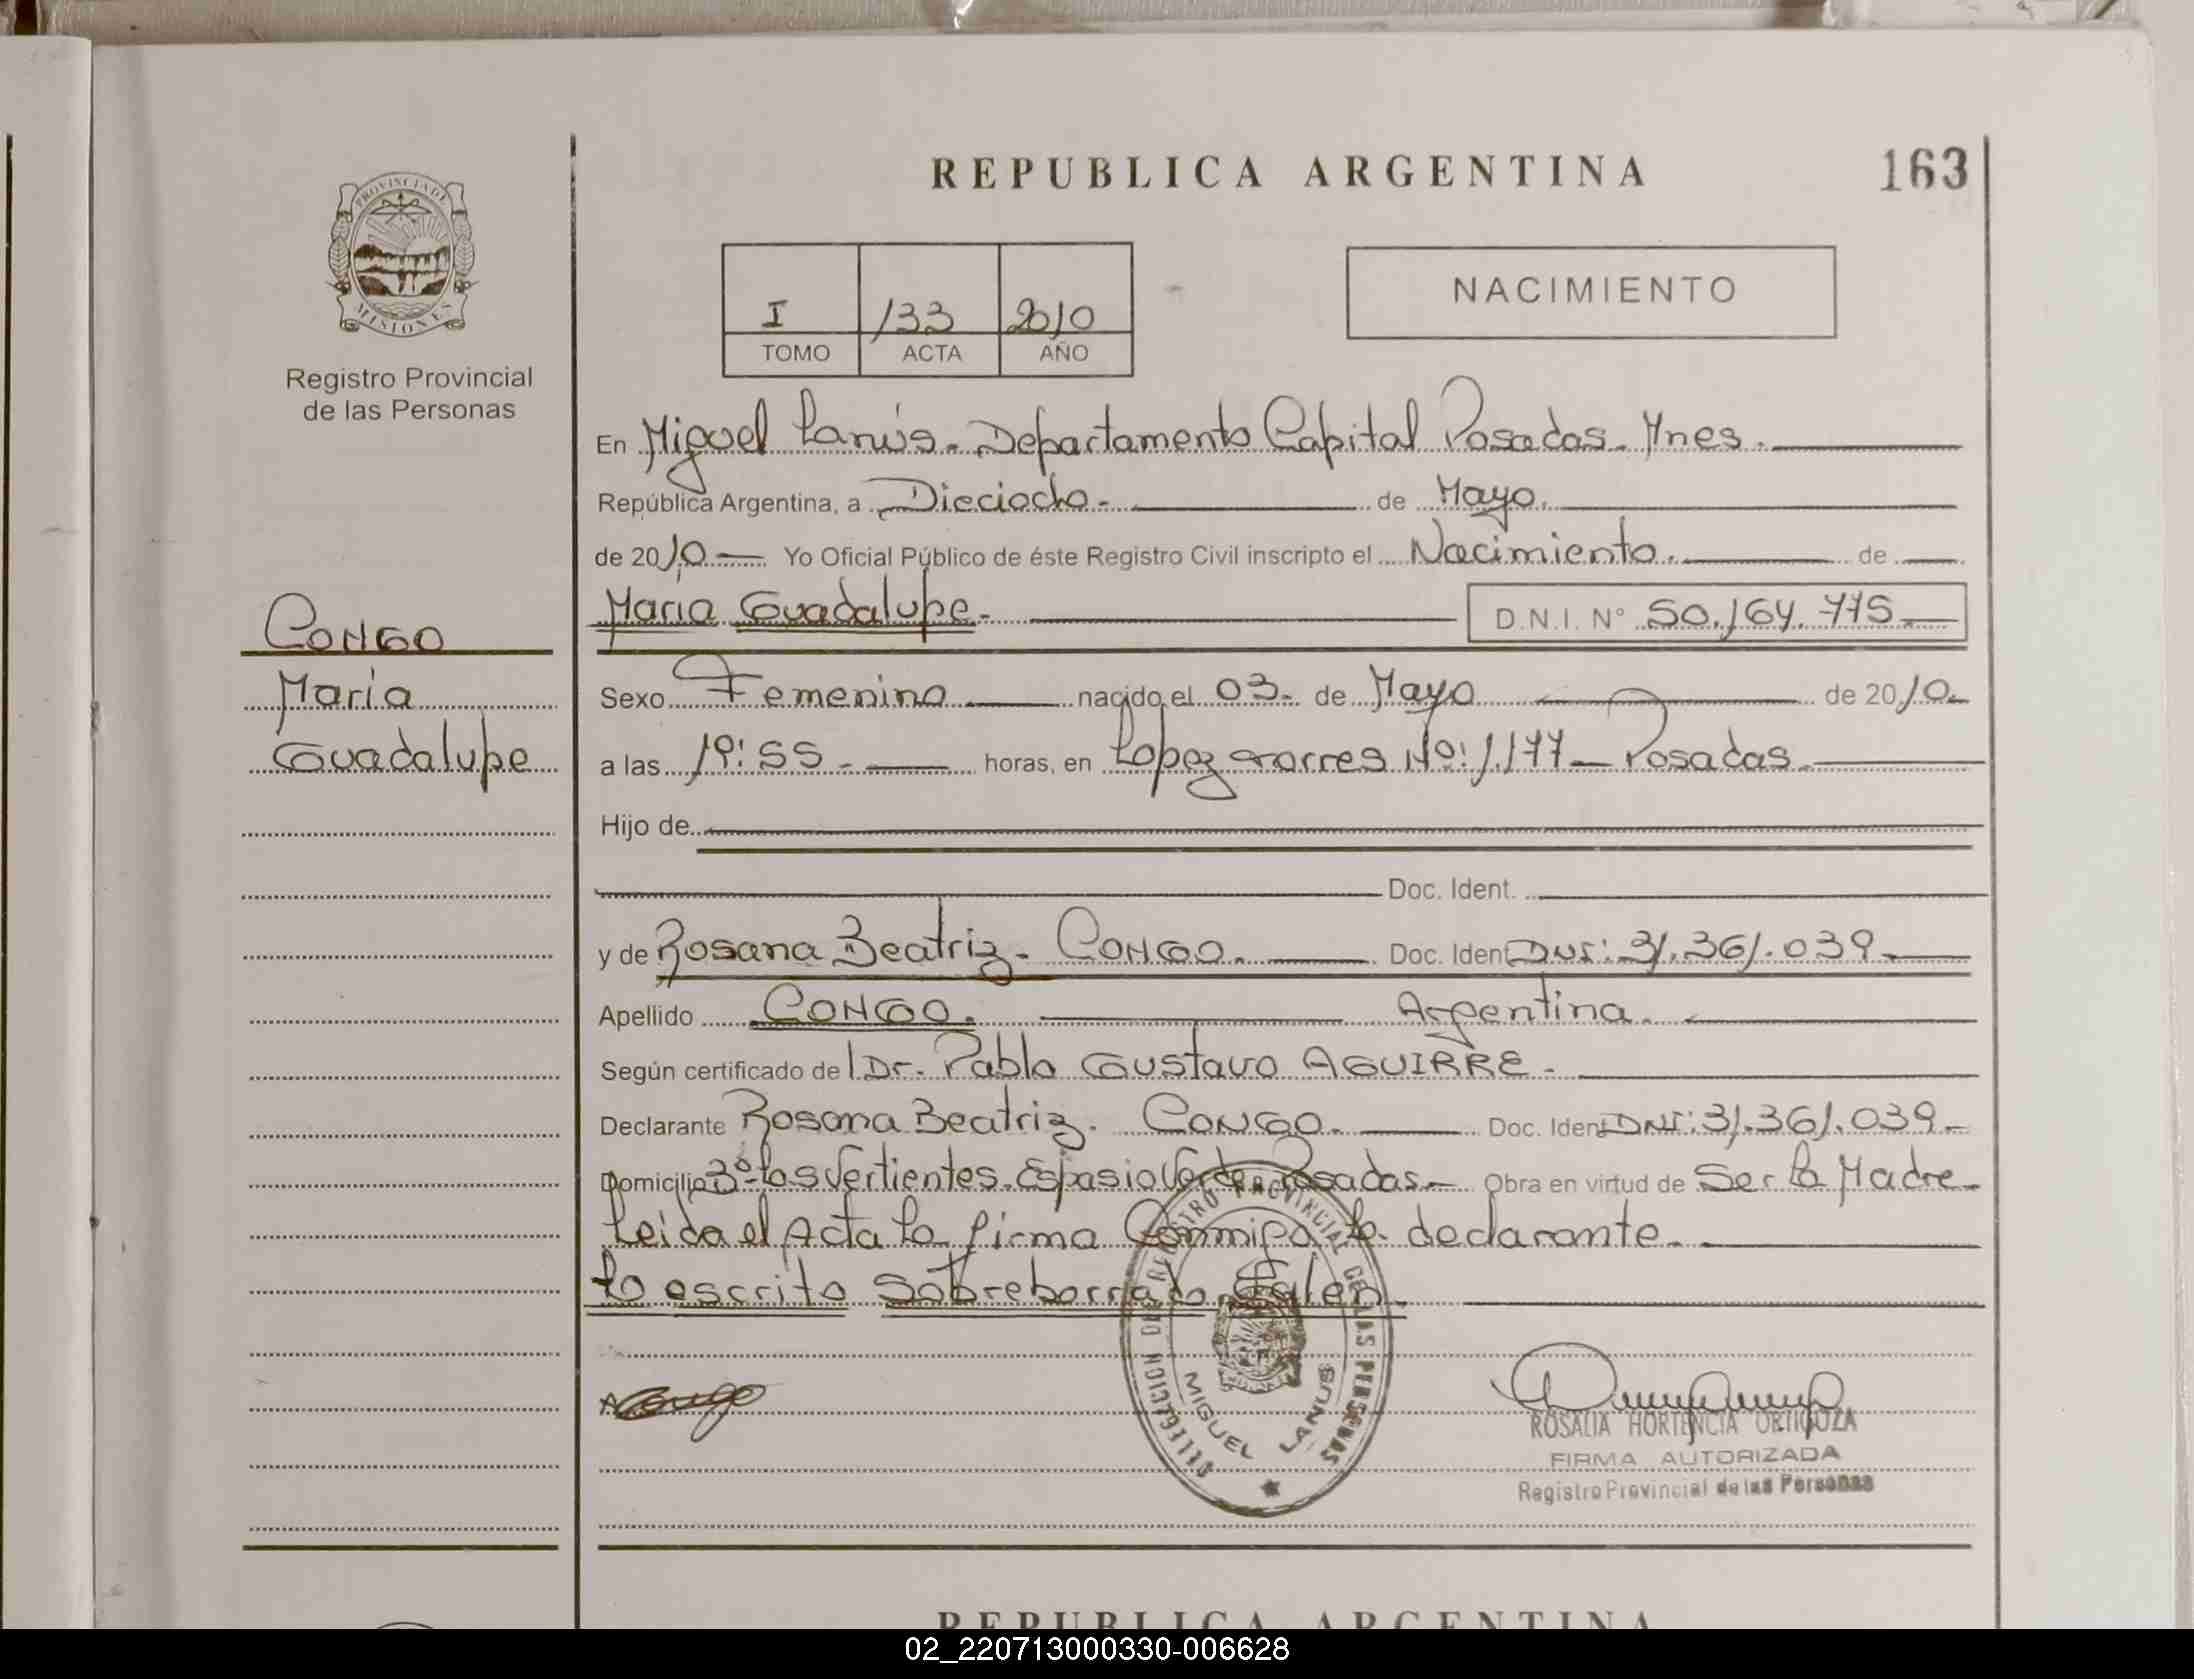 REPUBLICA ARGENTINA
163
PROVINCIA DE
MISIONES
Registro Provincial
de las Personas
I 133 2010
TOMO ACTA AÑO
NACIMIENTO
En Miguel Lanús. Departamento Capital Posadas. Mnes.
República Argentina, a Dieciocho. de Mayo.
de 2010 Yo Oficial Público de éste Registro Civil inscripto el Nacimiento. de
María Guadalupe. D.N.I. N° 50.164.775
CONGO
María
Guadalupe
Sexo Femenino nacido el 03. de Mayo de 2010.
a las 19:55. horas, en Lopez Torres No: 1.177 Posadas.
Hijo de
Doc. Ident.
y de Rosana Beatriz. CONGO. Doc. Ident DNI: 31.361.039
Apellido CONGO. Argentina.
Según certificado de l Dr. Pablo Gustavo AGUIRRE.
Declarante Rosana Beatriz. CONGO. Doc. Ident DNI: 31.361.039
Domicilio 3° Las Vertientes. Espasio Verde Posadas. Obra en virtud de Ser La Madre
Leida el Acta La firma Conmigo la declarante.
Lo escrito Sobreborrado
DELEGACION DEL REGISTRO PROVINCIAL DE LAS PERSONAS
MIGUEL LANUS
ROSALIA HORTENCIA ORTIGOZA
FIRMA AUTORIZADA
Registro Provincial de las Personas
REPUBLICA ARGENTINA
02_220713000330-006628